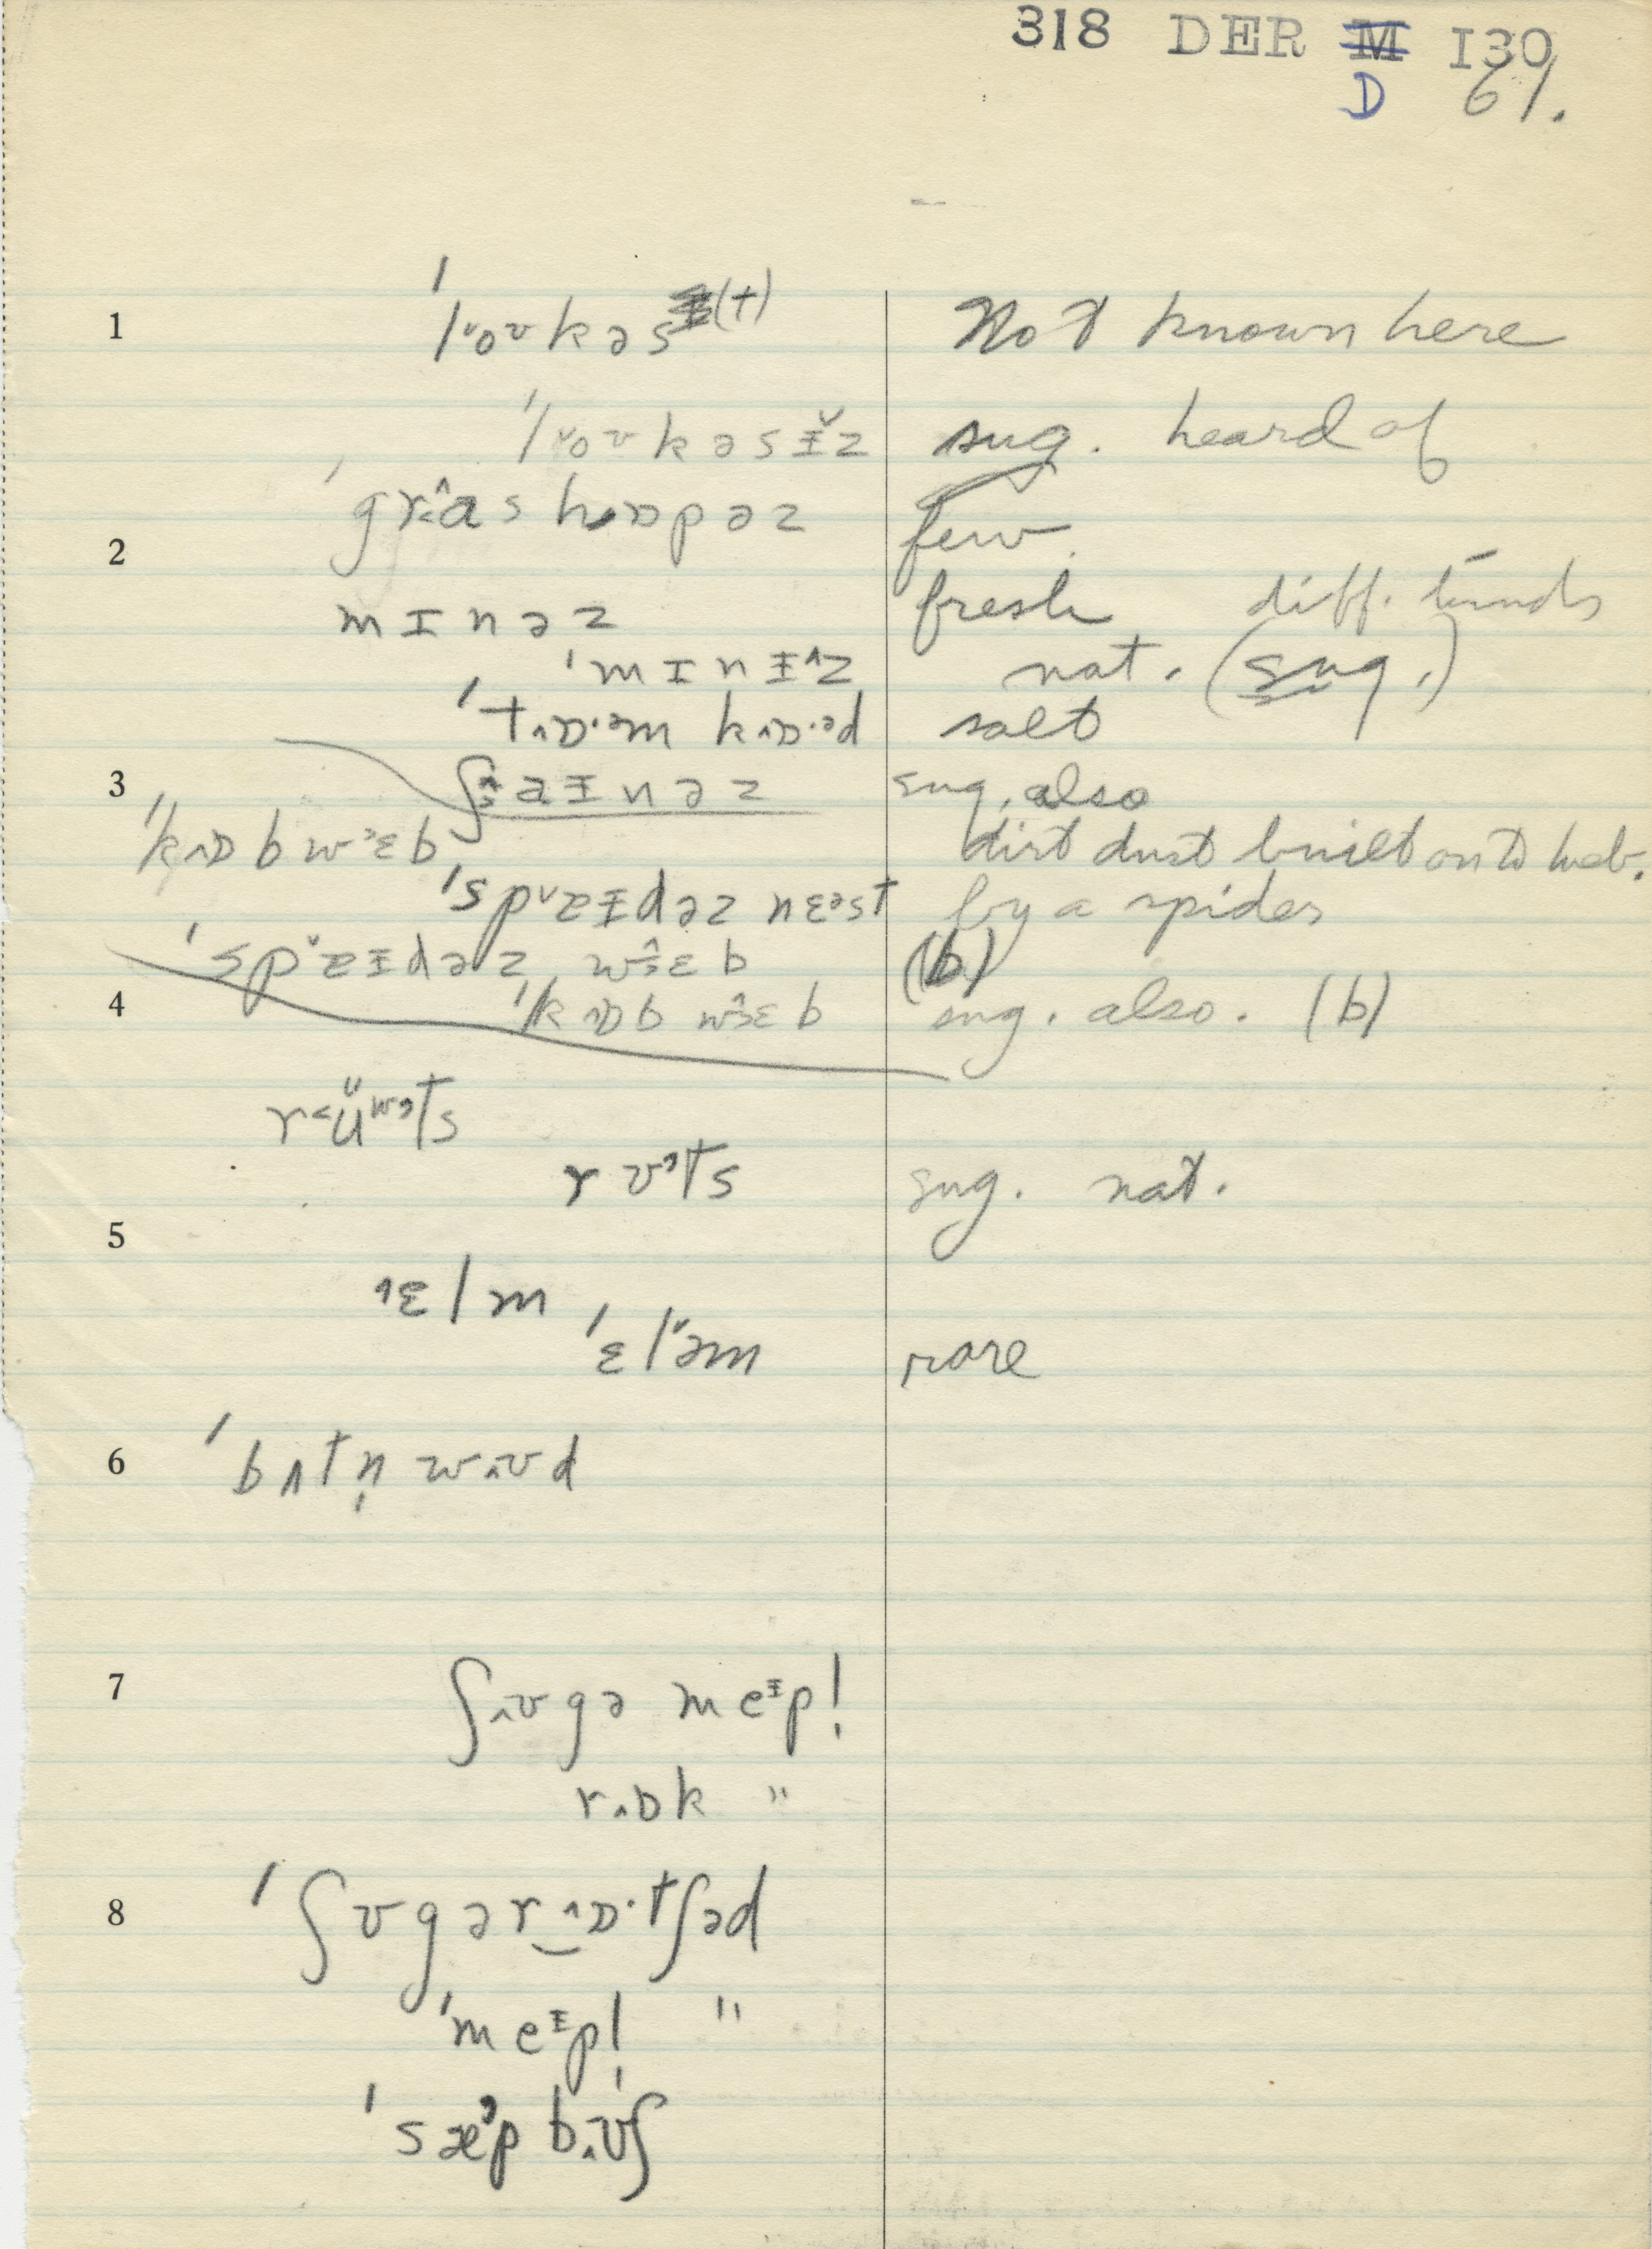 318 DER M I30
D 61.
1 ˈlˇoʊkəs(t) Not known here
ˈlˇoʊkəsɨ̌z sug. heard of
ˈgr˂a̭s hɒpəz few
2
mɪnəz fresh diff. kinds
ˈmɪnɨ^z nat. (sug.)
ˈt˄ɒ·ᵊm k˄ɒ·ᵊd salt
3 ʃaɨnəz sug. also
ˈk˄ɒb wᵊɛb dirt dust built onto web.
ˈspˇɐɨdəz nɛᵊst by a spider
ˈspˇɐɨdəz wɛb (b)
4 ˈk˄ɒb wɛb sug. also. (b)
r˂ʉ̌ʷᵊts
rʊᵊts sug. nat.
5
˄ɛlm
ˈɛlˇəm rare
6 ˈbʌtn̩ w˄ʊd
7 ʃ˄ʊgə meᶤpl̩
r˄ɒk "
8 ˈʃʊgər‿˄ɒ·tʃəd
ˈmeᶤpl̩ "
ˈsæᵊp b˄ʊʃ